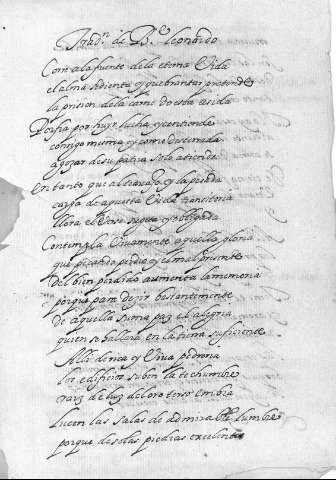 Tradn. de Be. leonardo
Corre a la fuente de la eterna Vida
el alma sedienta y quebrantar pretende
la prision de la carne do esta asida
Porfia por huyr lucha y contiende
consigo misma y como desterrada
a gozar de su patria solo atiende
En tanto que al trabajo y la pesada
carga de aquesta Vida transitoria
llora el verse sugeta y obligada
Contempla Vivamente aquella gloria
que pecando perdio y el mal presente
del bien perdido aumenta la memoria
porque para dezir bastantemente
de aquella suma paz el alegria
quien se hallera en la tierra suficiente
Alli de rica y Viva pedreria
los edificios suben la techumbre
raiz de luz del oro terso embia
lucen las salas de admirable lumbre
porque de solas piedras excelentes